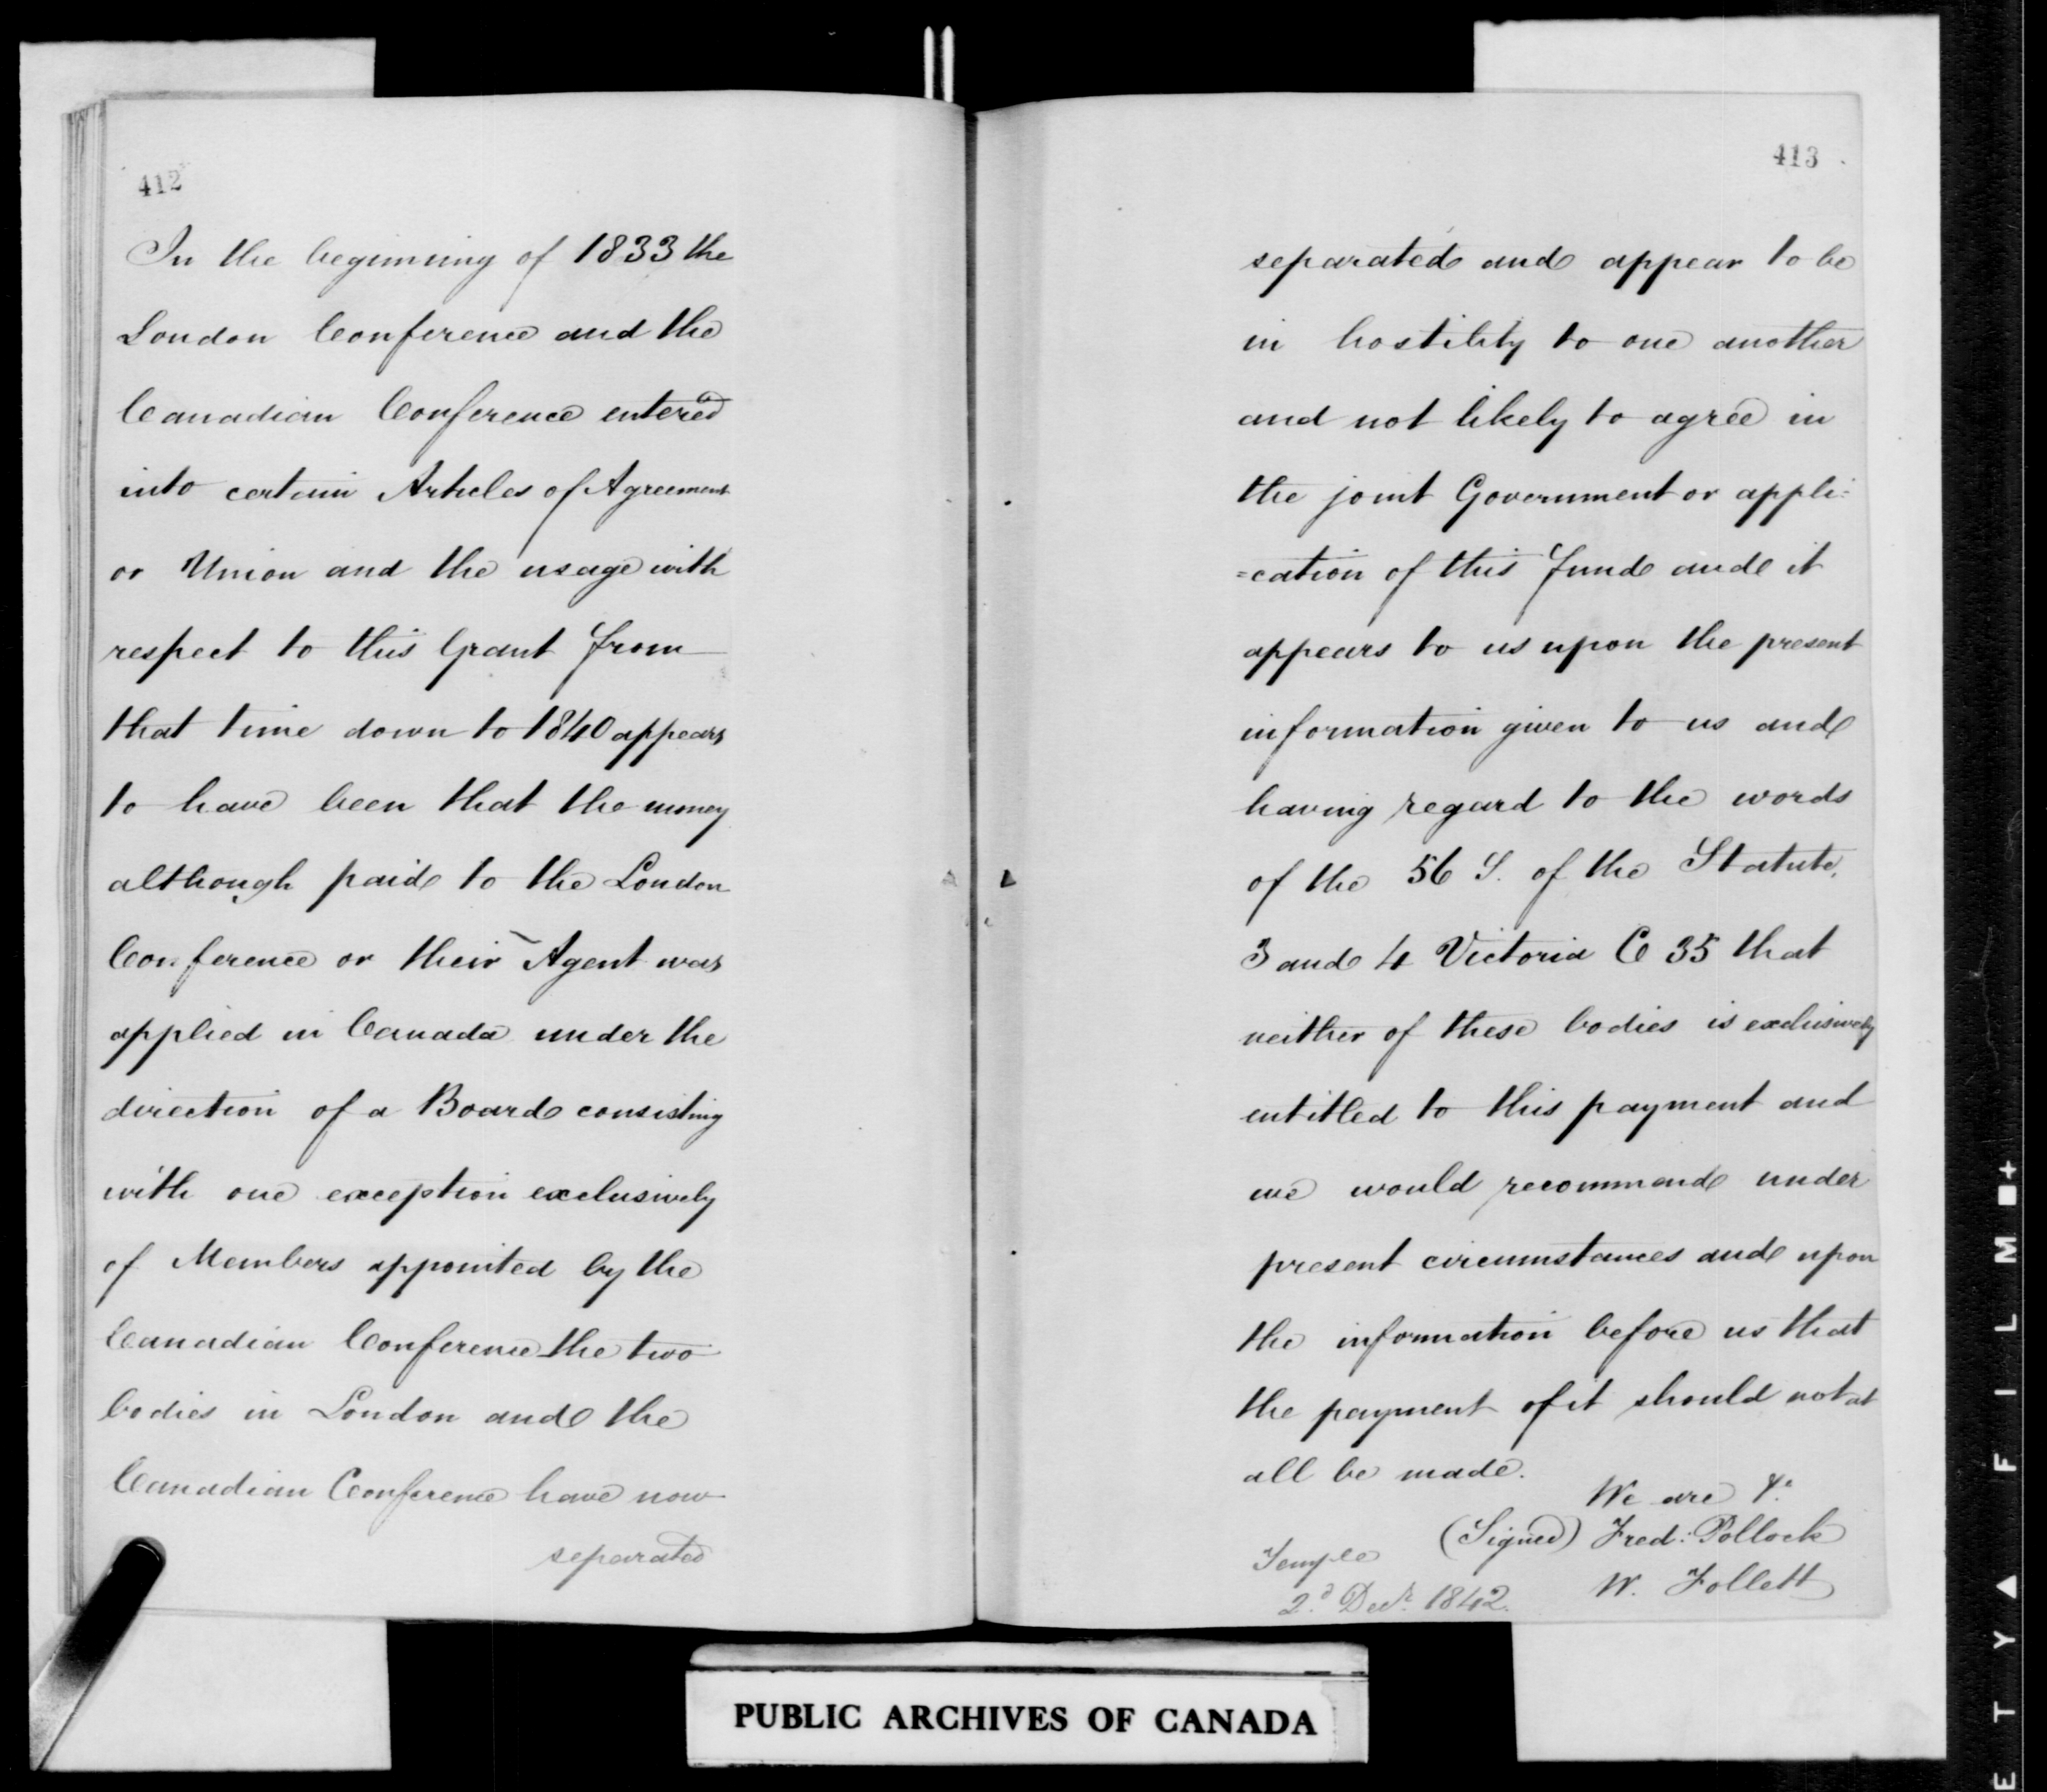 412
In the beginning of 1833 the
London Conference and the
Canadian Conference entered
into certain Articles of Agreement
or Union and the usage with
respect to this Grant from
that time down to 1840 appears
to have been that the money
although paid to the London
Conference or their Agent was
applied in Canada under the
direction of a Board consisting
with one exception exclusively
of Members appointed by the
Canadian Conference the two
bodies in London and the
Canadian Conference have now
separated
413
separated and appear to be
in hostility to one another
and not likely to agree in
the joint Government or appli=
=cation of this Fund and it
appears to us upon the present
information given to us and
having regard to the words
of the 56 S. of the Statute,
3 and 4 Victoria C 35 that
neither of these bodies is exclusively
entitled to this payment and
we would recommend under
present circumstances and upon
the information before us that
the payment of it should not at
all be made.
We are &c
(Signed) Fred: Pollock
W. Follett
Temple
2d Decr 1842.
PUBLIC ARCHIVES OF CANADA
E T Y ▲ F I L M ■+